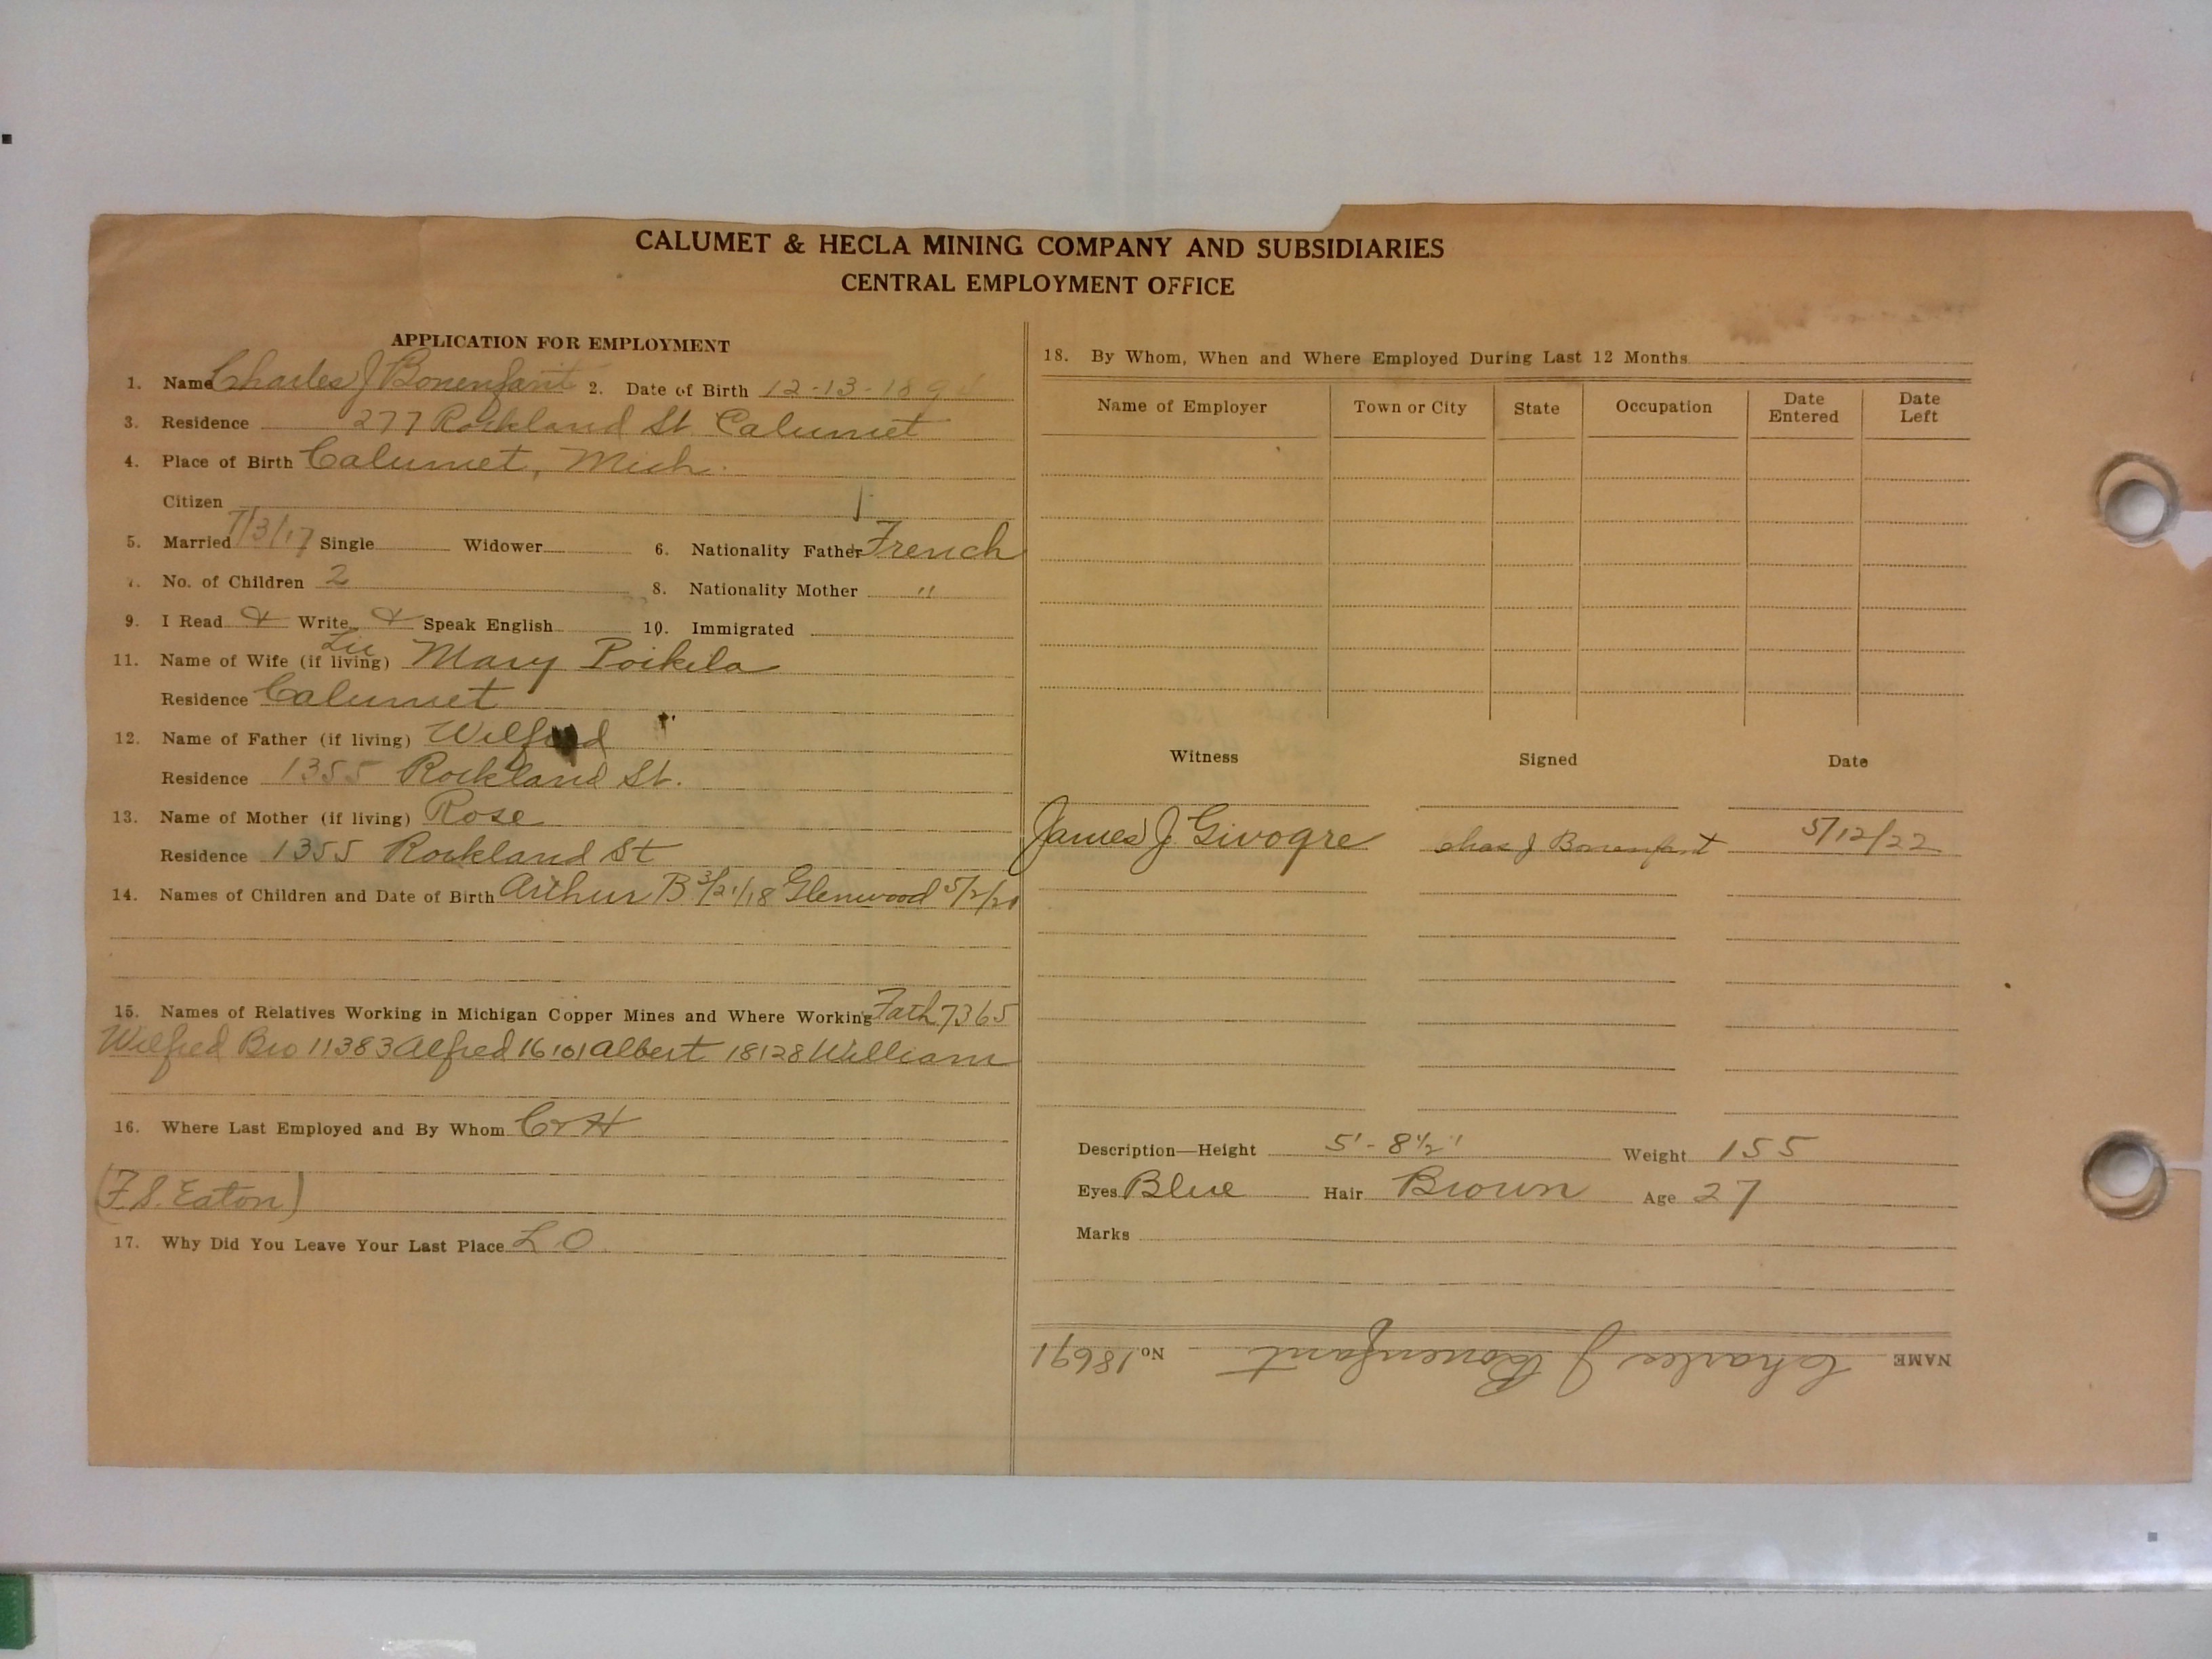 CALUMET & HECLA MINING COMPANY AND SUBSIDIARIES
CENTRAL EMPLOYMENT OFFICE
APPLICATION FOR EMPLOYMENT
1. Name Charles J Bonenfant 2. Date of Birth 12-13-1894
3. Residence 277 Rockland St. Calumet
4. Place of Birth Calumet, Mich.
Citizen
5. Married 7/3/17 Single Widower 6. Nationality Father French
7. No. of Children 2 8. Nationality Mother "
9. I Read & Write & Speak English 10. Immigrated
11. Name of Wife (if living) Mary Poikila
Residence Calumet
12. Name of Father (if living) Wilfred
Residence 1355 Rockland St.
13. Name of Mother (if living) Rose
Residence 1355 Rockland St
14. Names of Children and Date of Birth Arthur B 3/21/18 Glenwood 5/2/20
15. Names of Relatives Working in Michigan Copper Mines and Where Working Fath 7365
Wilfred Bro 11383 Alfred 16101 Albert 18128 William
16. Where Last Employed and By Whom C & H
(F.S. Eaton)
17. Why Did You Leave Your Last Place L O
18. By Whom, When and Where Employed During Last 12 Months
Name of Employer Town or City State Occupation Date Entered Date Left
Witness Signed Date
James J Givogre Chas J Bonenfant 5/12/22
Description—Height 5'-8½" Weight 155
Eyes Blue Hair Brown Age 27
Marks
NAME Charles J Bonenfant No. 18691